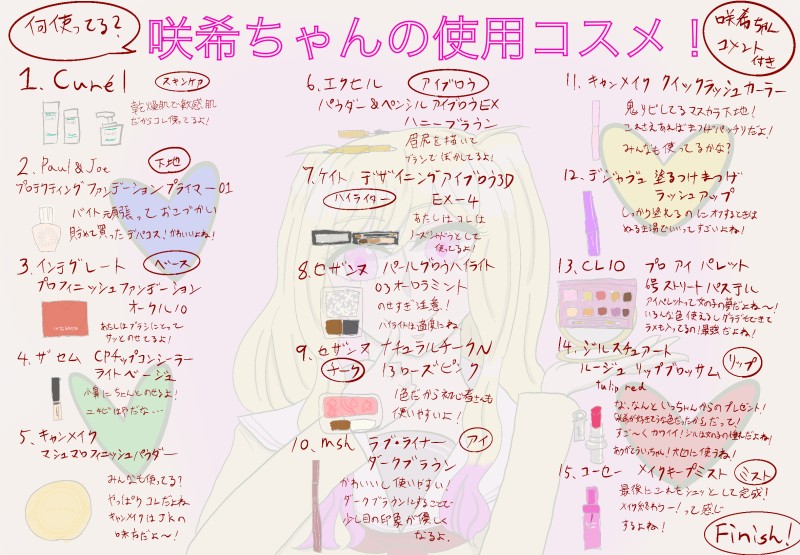 何使ってる?
咲希ちゃんの使用コスメ!
咲希ちゃん
コメント
付き
1. Curél
スキンケア
乾燥肌で敏感肌
だからコレ使ってるよ!
2. Paul & Joe
下地
プロテクティングファンデーションプライマー01
バイト頑張っておこづかい
貯めて買ったデパコス!かわいいよね!
3. インテグレート
ベース
プロフィニッシュファンデーション
オークル10
あたしはブラシにとって
サッとのせてるよ!
4. ザセム CPチップコンシーラー
ライトベージュ
小鼻にちょんとのせるよ!
ニキビは印だな…
5. キャンメイク
マシュマロフィニッシュパウダー
みんなも使ってる?
やっぱりコレだよね
キャンメイクはJKの
味方だよ〜!
6. エクセル
アイブロウ
パウダー&ペンシル アイブロウEX
ハニーブラウン
眉尻を描いて
ブラシでぼかしてるよ!
7. ケイト デザイニングアイブロウ3D
ハイライター
EX-4
あたしはコレは
ノーズシャドウとして
使ってるよ!
8. セザンヌ パールグロウハイライト
03オーロラミント
のせすぎ注意!
ハイライトは適度にね
9. セザンヌ ナチュラルチークN
チーク
13ローズピンク
1色だから初心者さんも
使いやすいよ!
10. msh ラブ・ライナー
アイ
ダークブラウン
かわいいし使いやすい!
ダークブラウンにすることで
少し目の印象が優しく
なるよ。
11. キャンメイク クイックラッシュカーラー
鬼リピしてるマスカラ下地!
これさえあればまつげパッチリだよ!
みんなも使ってるかな?
12. デジャヴュ 塗るつけまつげ
ラッシュアップ
しっかり塗れるのにオフするときは
ぬるま湯でいいってすごいよね!
13. CLIO プロ アイ パレット
6号ストリートパステル
アイパレットって女の子の夢だよね〜!
いろんな色使えるしグラデもできて
ラメも入ってるの!最強だよね!
14. ジルスチュアート
リップ
ルージュ リップブロッサム
tulip red
な、なんといっちゃんからのプレゼント!
咲希が好きそうな色だったからだって!
すご〜くカワイイ!ジルは女の子の憧れだよね!
ありがとういっちゃん!大切に使うね!
15. コーセー メイクキープミスト
ミスト
最後にこれをシュッとして完成!
メイク終わりー!って感じ
するよね!
Finish!